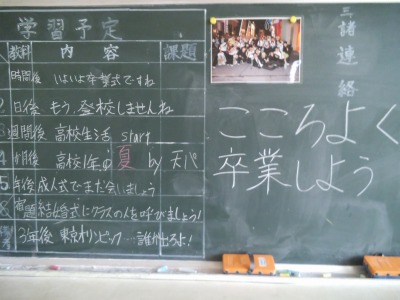 学習予定
教科 内容 課題
1時間後 いよいよ卒業式ですね
2日後 もう、登校しませんね
3週間後 高校生活 start
4ヶ月後 高校1年の夏 by 天心
5年後 成人式でまた会いましょう
宿題 結婚式にクラスの人を呼びましょう!
備考 3年後 東京オリンピック…誰か出ろよ!
諸連絡
こころよく
卒業しよう